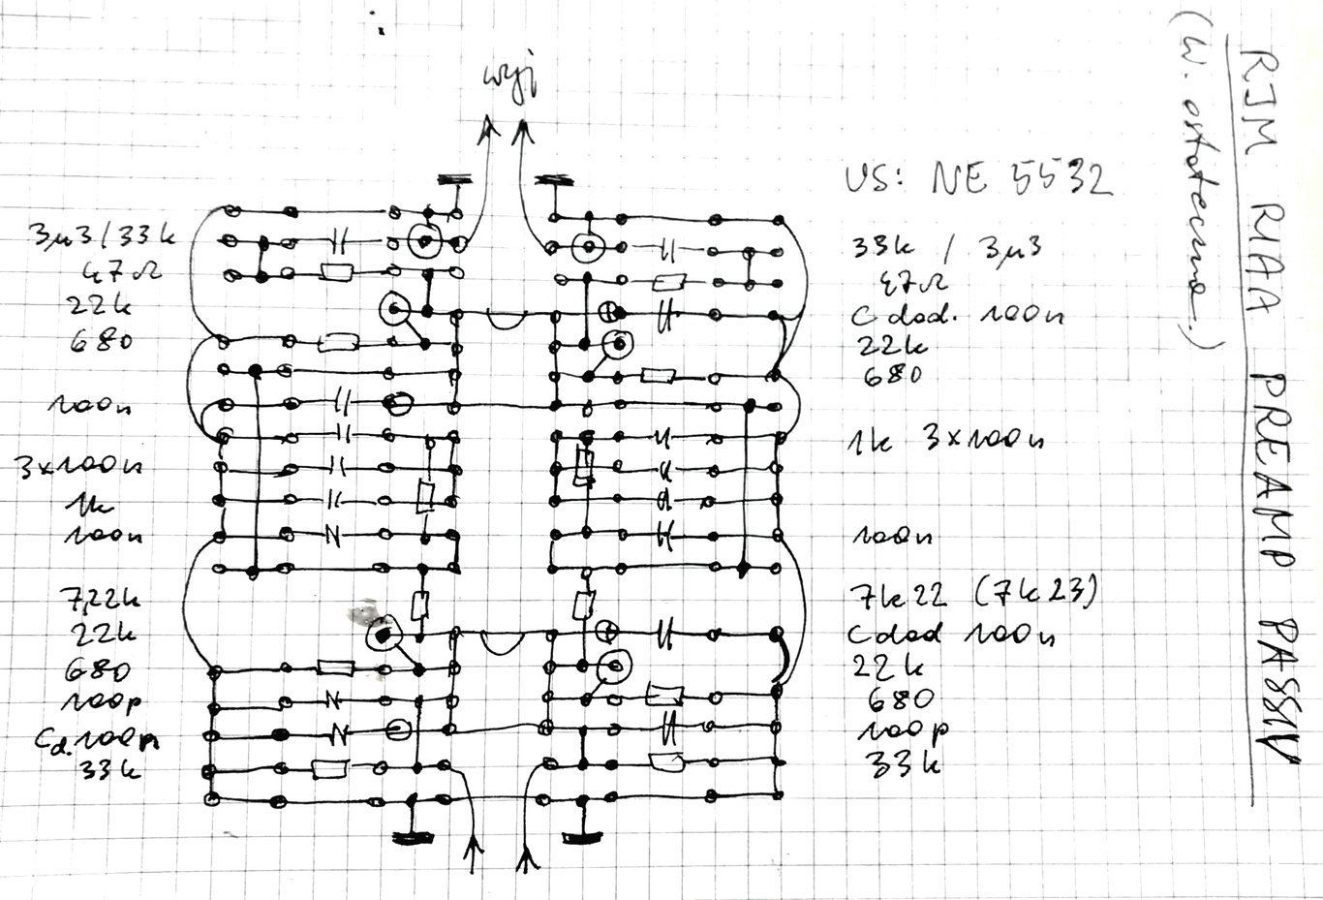 RJM RIAA PREAMP PASSIV
(W. ostateczna.)
wyj
US: NE 5532
3µ3/33k
47Ω
22k
680
100n
3x100n
1k
100n
7,22k
22k
680
100p
Cd. 100n
33k
33k / 3µ3
47Ω
C dod. 100n
22k
680
1k 3x100n
100n
7k22 (7k23)
C dod 100n
22k
680
100p
33k